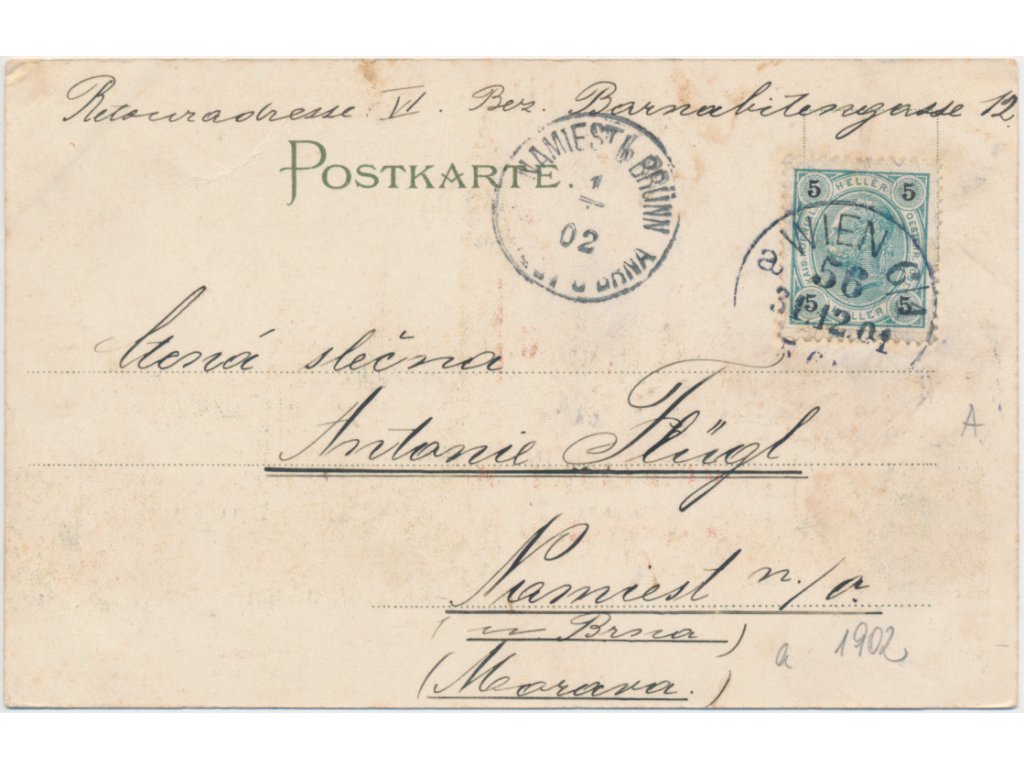 Retouradresse VI. Bez. Barnabitengasse 12
POSTKARTE.
NAMIEST b. BRÜNN
1
I
02
U BRNA
5 HELLER 5
5 HELLER 5
a WIEN 6/1
56
31.12.01
Ctená slečna
Antonie Flügl
Namiest n./O.
(u Brna)
(Morava.)
A
a 1902